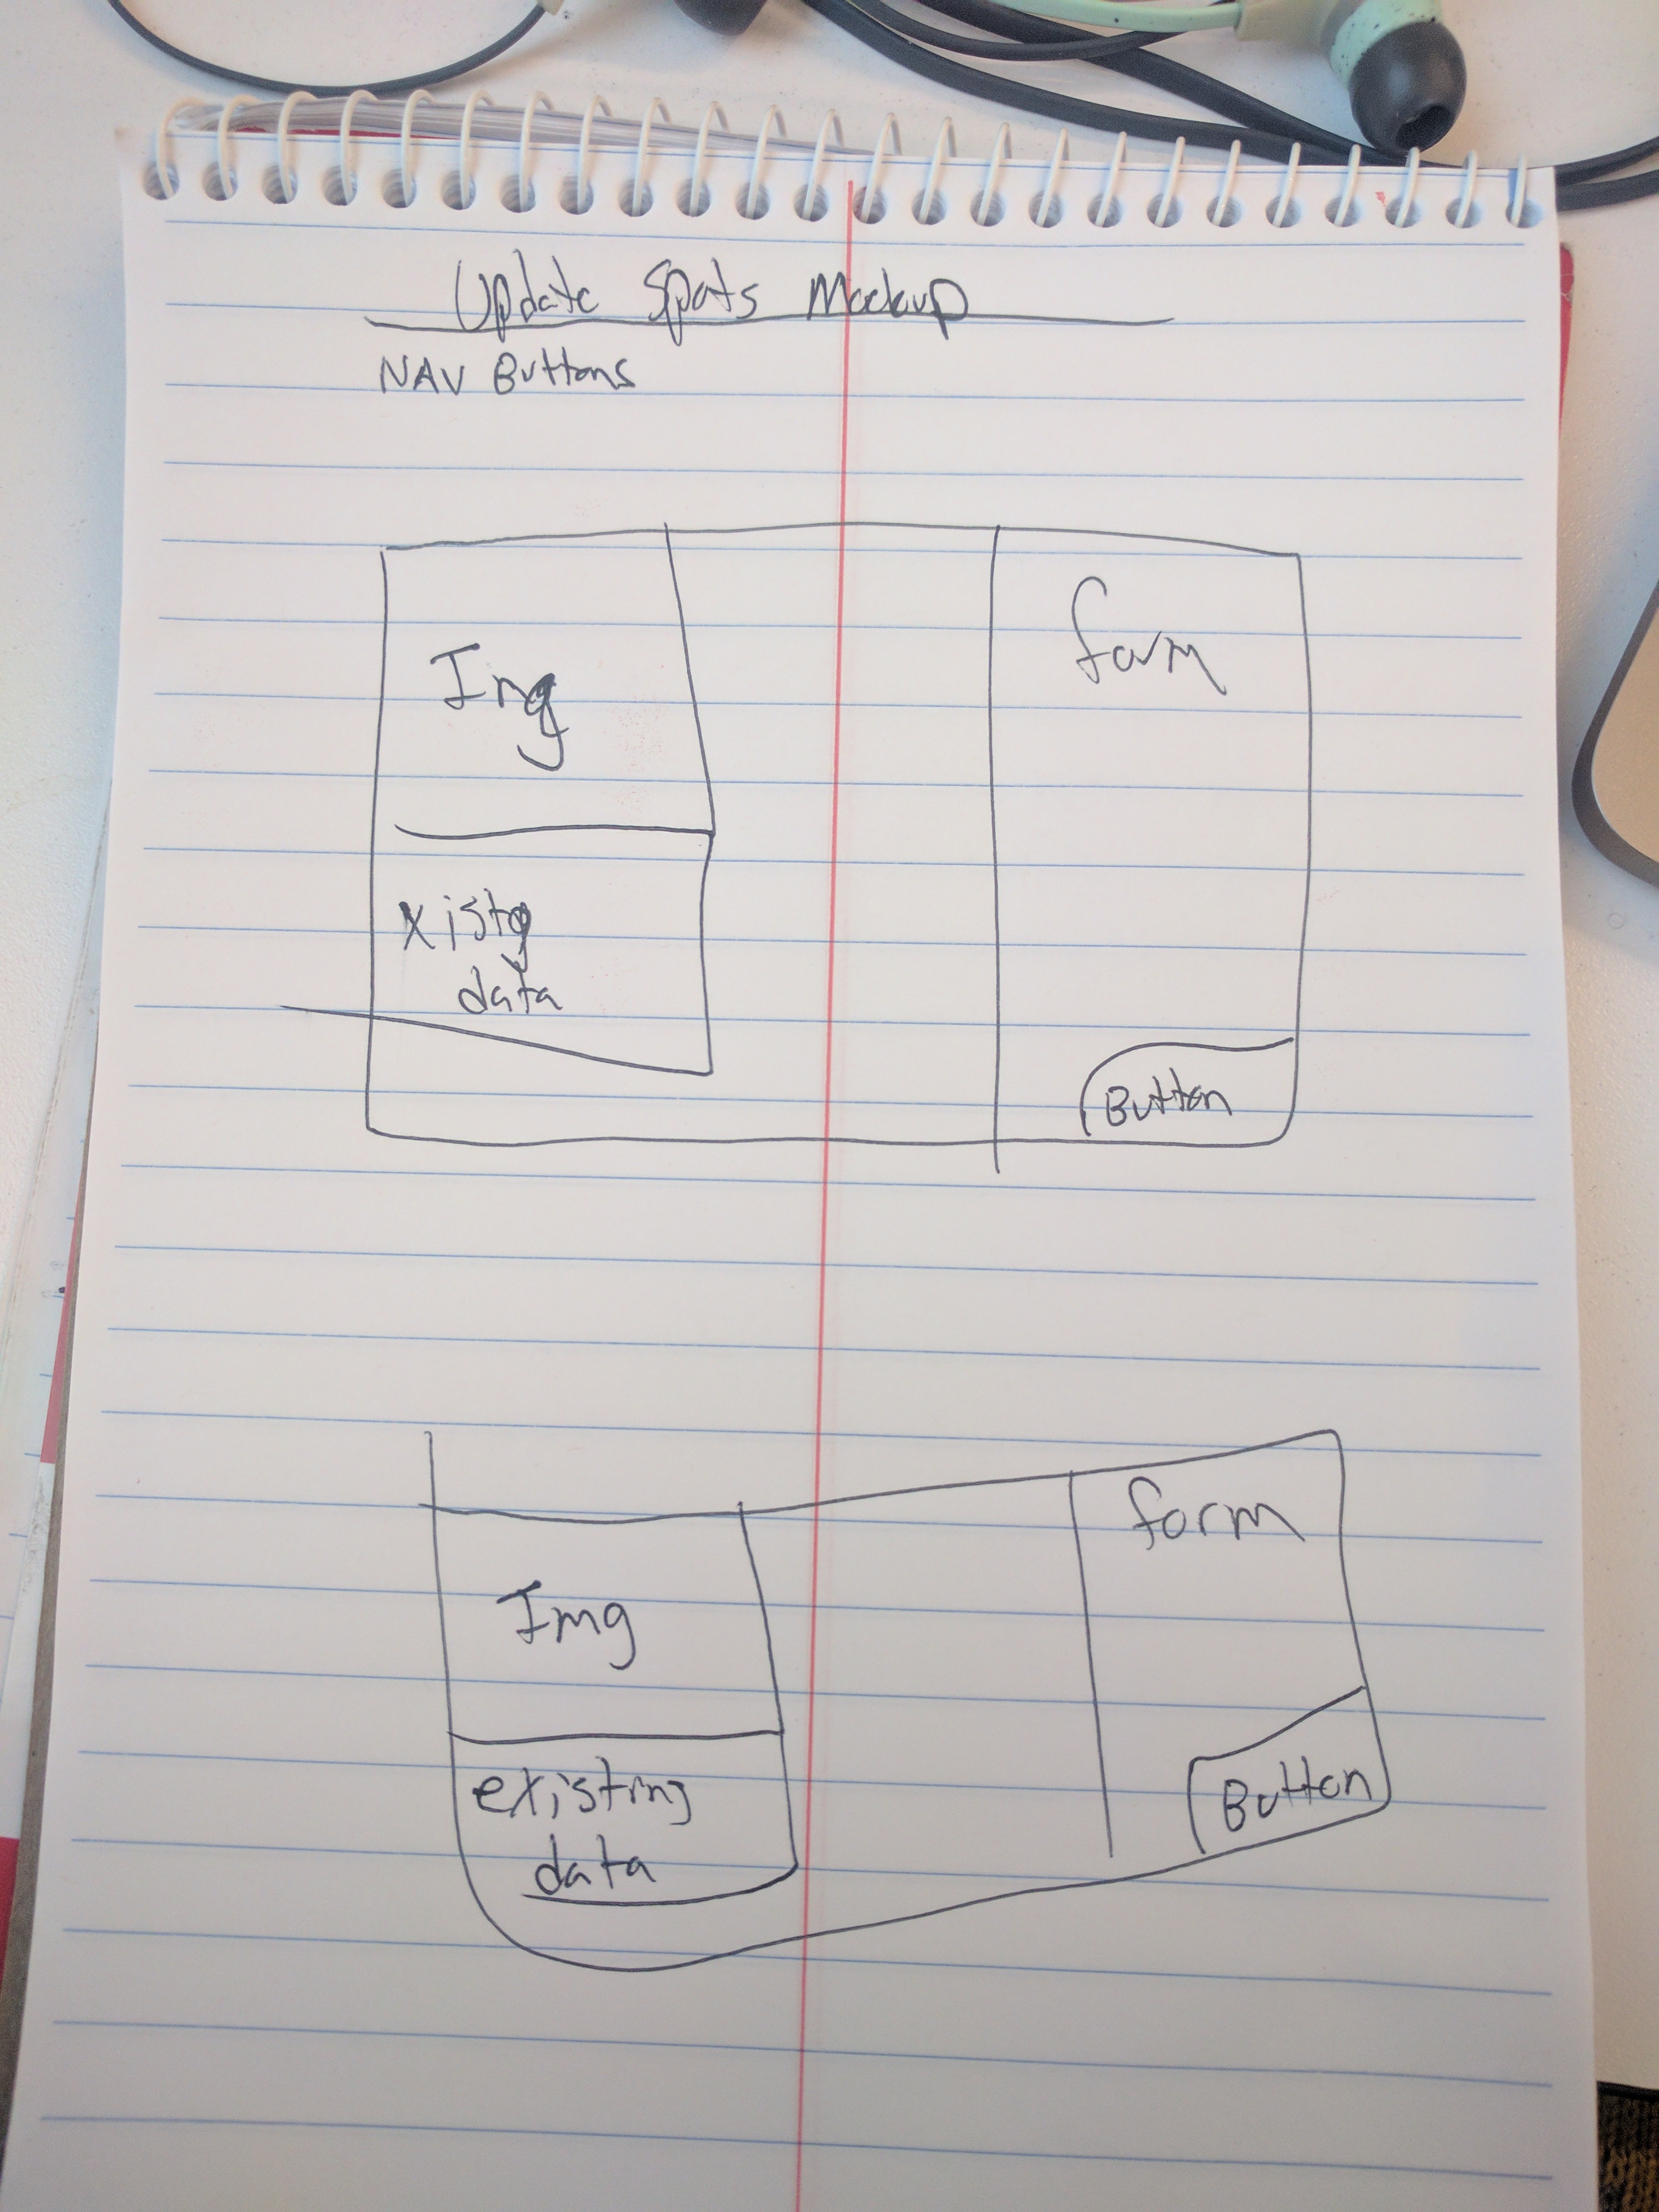 Update Spots Mockup
NAV Buttons
Img
form
xistg
data
Button
form
Img
existing
data
Button